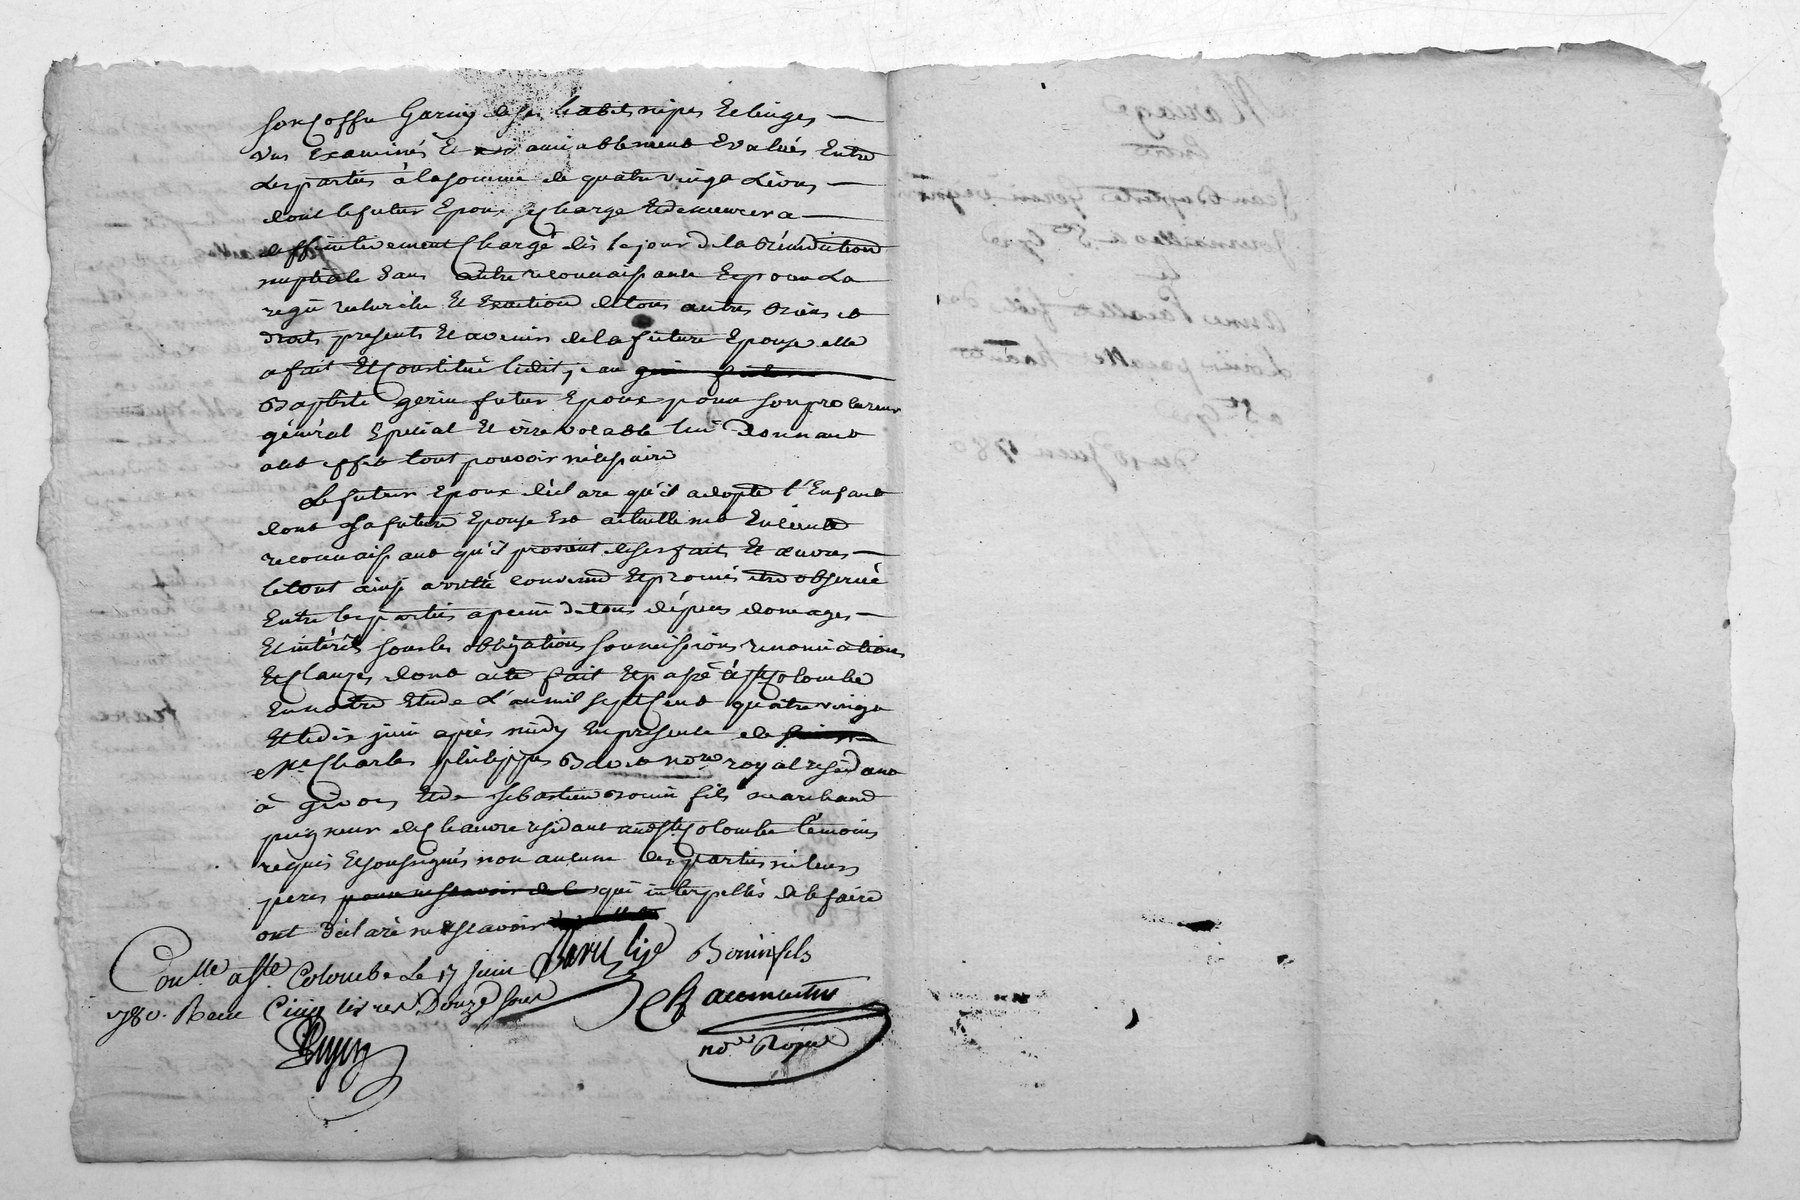 son coffre Garnis de ses habits nipes Et linges —
Vus Examinés Et amiablement Evalués Entre
Les parties à la somme de quatre vingt Livres —
dont le futur Epoux se charge Et demeurera —
deffinitivement Chargé dès le jour de la Bénédiction
nuptiale sans autre reconnaissance Et pour La
regie recherche Et Exaction de tous autres Biens et
droits presents Et avenir de la future Epouse elle
a fait Et Constitué ledit jean
Baptiste gerin futur Epoux pour son procureur
général special Et irrevocable lui Donnant
a cet effet tout pouvoir nécessaire
Le futur Epoux déclare qu'il adopte l'Enfant
dont sa future Epouse Est actuellement Enceinte
reconnaissant qu'il provient de ses faits Et œuvres —
le tout ainsi arrêté convenu Et promis être observé
Entre les parties a peine de tous dépens domages —
Et intérêts sous les obligations soumissions renonciations
Et Clauses dont acte fait Et passé à Ste Colombe
En notre Etude L'an mil sept Cent quatre vingt
Et le dix juin après midy En presence de
Me Charles philippe Baret nore royal residant
à givors Et de sebastien Bonin fils marchand
peigneur de Chanvre residant aud Ste Colombe témoins
requis Et soussignés non aucune des parties ni leurs
peres qui interpellés de le faire
ont déclaré ne sçavoir
Bonin fils
Conlle a Ste Colombe Le 17 juin
1780. Recu Cinq livres Douze sous
nore Royal
Mariage
Entre
Jean Baptiste Gerin
journallier a Ste Cyr
Et
a St Cyr
Du 10 Juin 1780